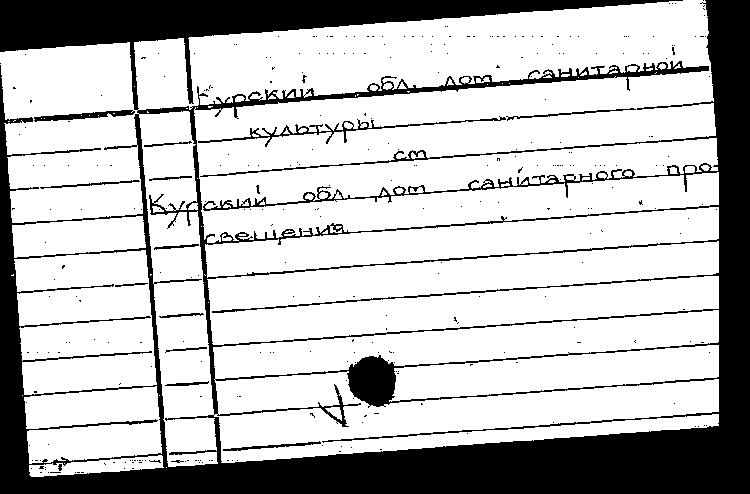 Курский обл. дом санитарной
культуры
см
Курский обл. дом санитарного про-
свещения